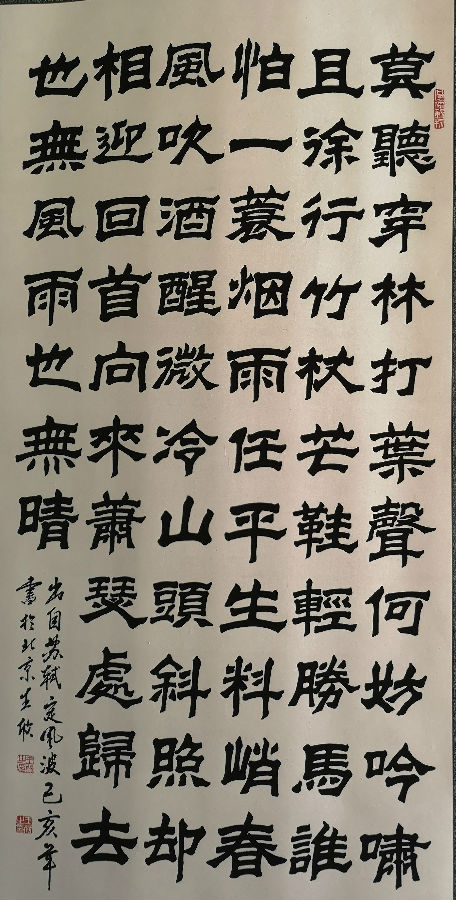 莫聽穿林打葉聲何妨吟嘯
且徐行竹杖芒鞋輕勝馬誰
怕一蓑烟雨任平生料峭春
風吹酒醒微冷山頭斜照却
相迎回首向來蕭瑟處歸去
也無風雨也無晴
出自苏軾定風波己亥年
書於北京